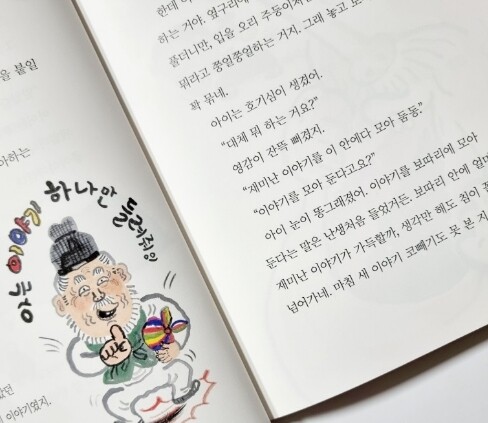 을 붙일
아하는
옹 이야기 하나만 들려줘잉
았던
이야기였지.
한데
하는 거야. 옆구리에
풀더니만, 입을 오리 주둥이처
뭐라고 쭝얼쭝얼하는 거지. 그래 놓고 보
꽉 묶네.
아이는 호기심이 생겼어.
"대체 뭐 하는 거요?"
영감이 잔뜩 삐겼지.
"재미난 이야기를 이 안에다 모아 둠둠."
"이야기를 모아 둔다고요?"
아이 눈이 똥그래졌어. 이야기를 보따리에 모아
둔다는 말은 난생처음 들었거든. 보따리 안에 얼마
재미난 이야기가 가득할까, 생각만 해도 침이 꼴
넘어가네. 마침 새 이야기 코빼기도 못 본 지